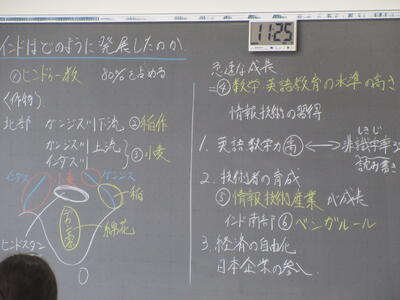 インドはどのように発展したのか
①ヒンドゥー教 80%を占める
〈作物〉
北部 ガンジス川下流 ②稲作
ガンジス川上流
インダス川
③小麦
インダス
小麦
ガンジス
稲
綿花
ヒンドスタン
11:25
急速な成長
=④数学 英語教育の水準の高さ
情報技術の習得
1. 英語 数学力 高 ⟷ 非識字率
しきじ
読み書き
2. 技術者の育成
⑤情報技術産業が成長
インド南部 ⑥ベンガルール
3. 経済の自由化
日本企業の参入